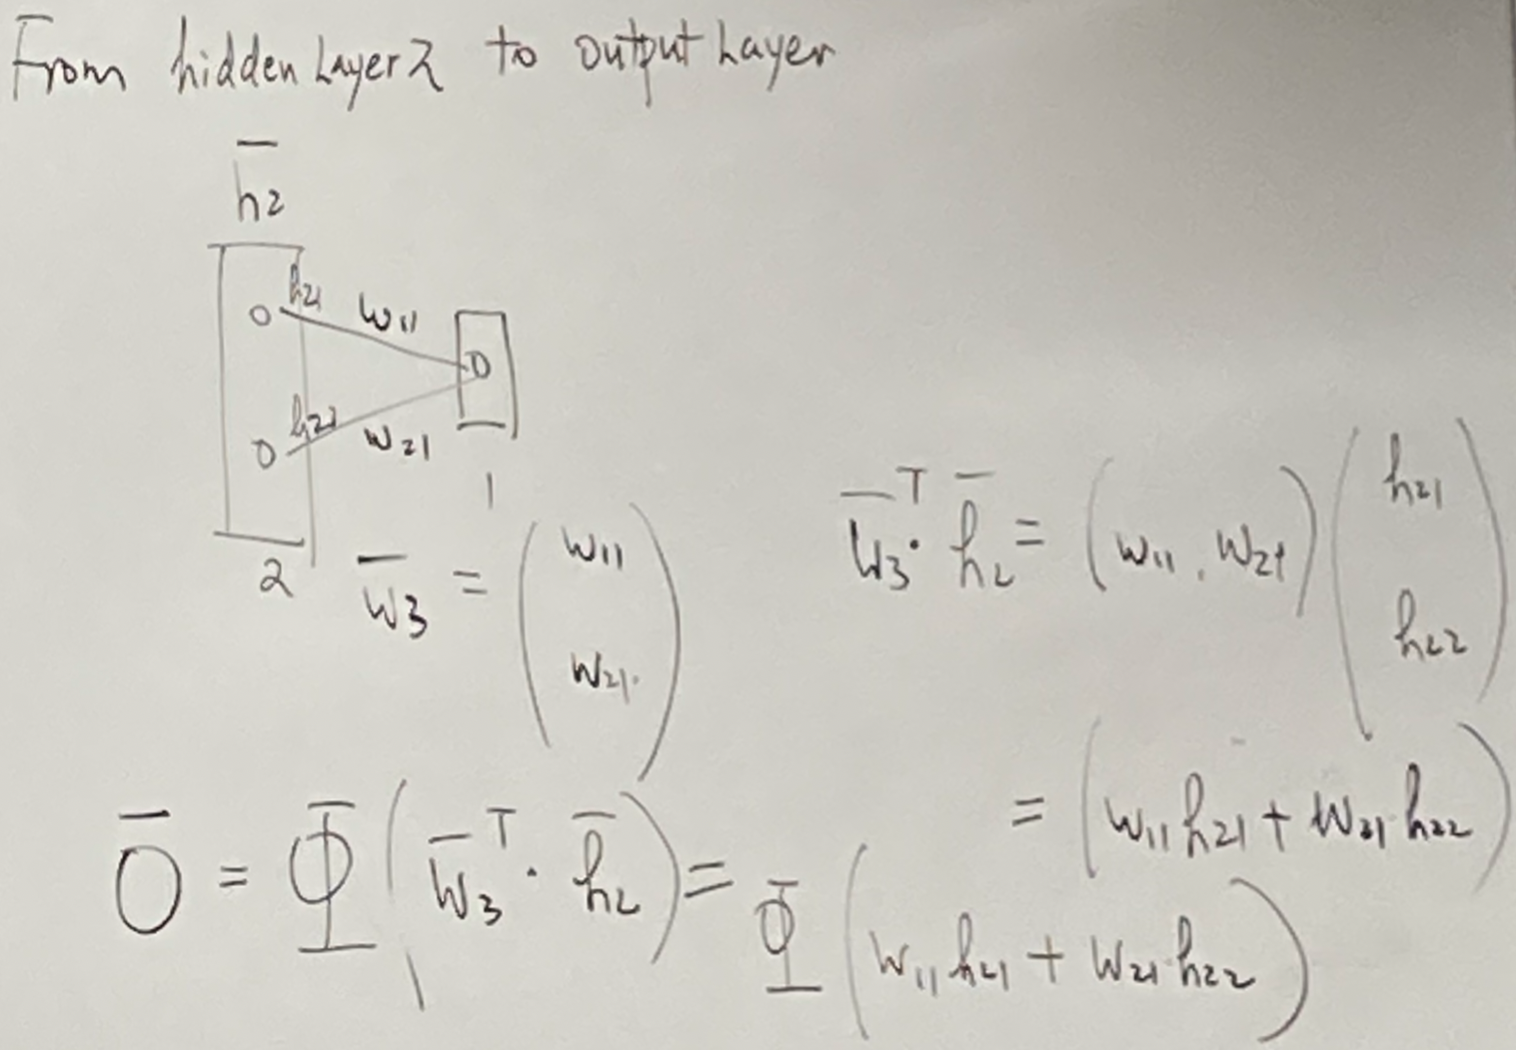 From hidden Layer 2 to output Layer
h̄2
h21 w11
0
h22 w21
1
2
w̄3 = (w11 w21)
w̄3ᵀ · h̄2 = (w11, w21) (h21 h22)
= (w11 h21 + w21 h22)
Ō = Φ (w̄3ᵀ · h̄2) = Φ (w11 h21 + w21 h22)